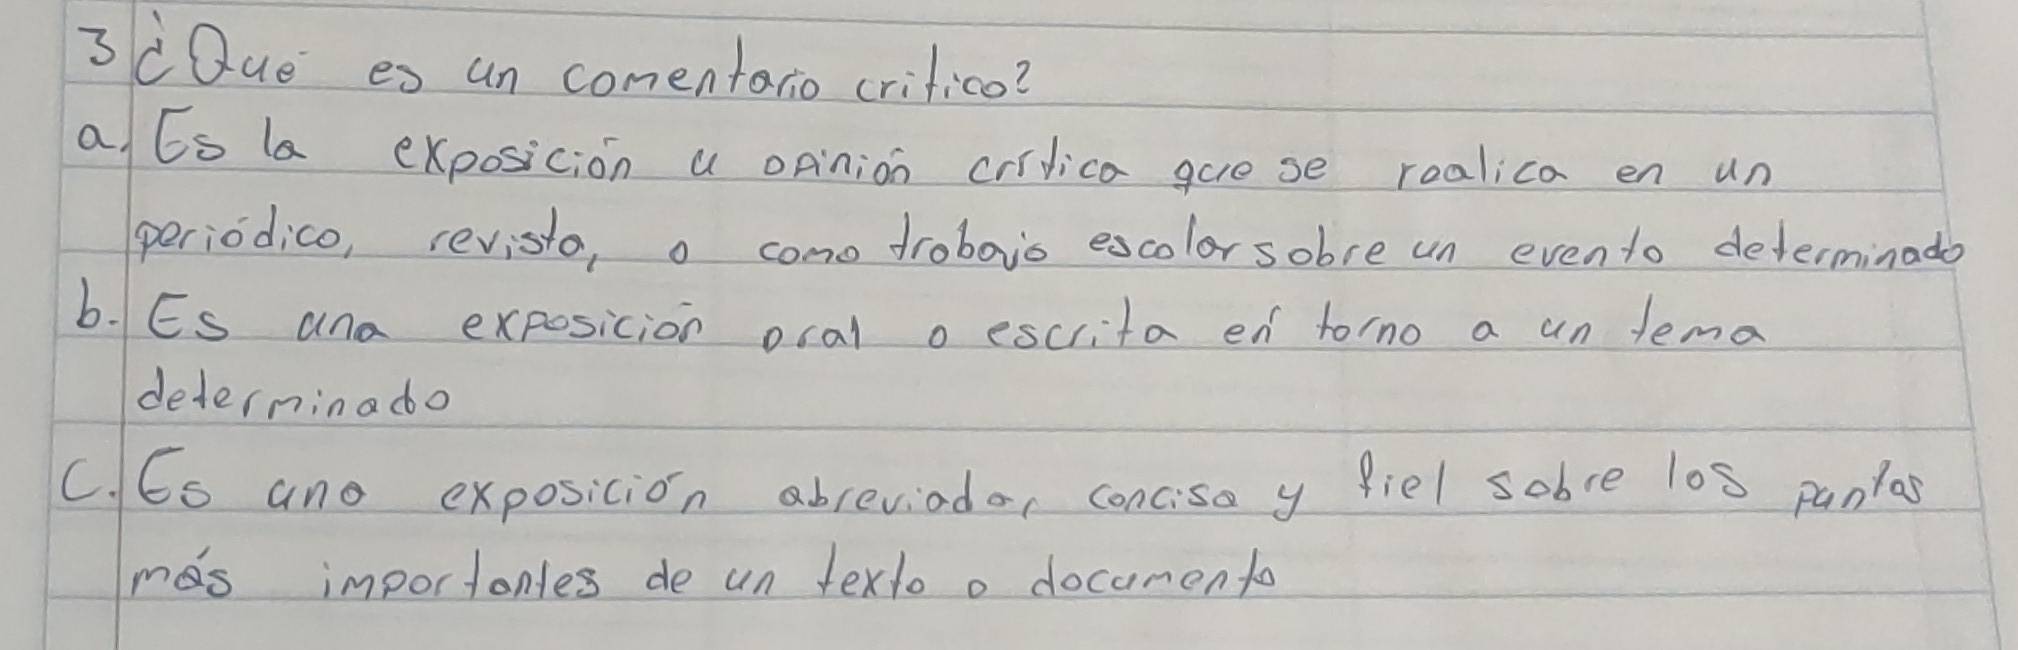 3 ¿Qué es un comentario critico?
a. Es la exposición u opinión crítica que se realica en un
periódico, revista, o como trabajo escolar sobre un evento determinado
b. Es una exposición oral o escrita en torno a un tema
determinado
C. Es una exposición abreviada, concisa y fiel sobre los puntos
más importantes de un texto o documento